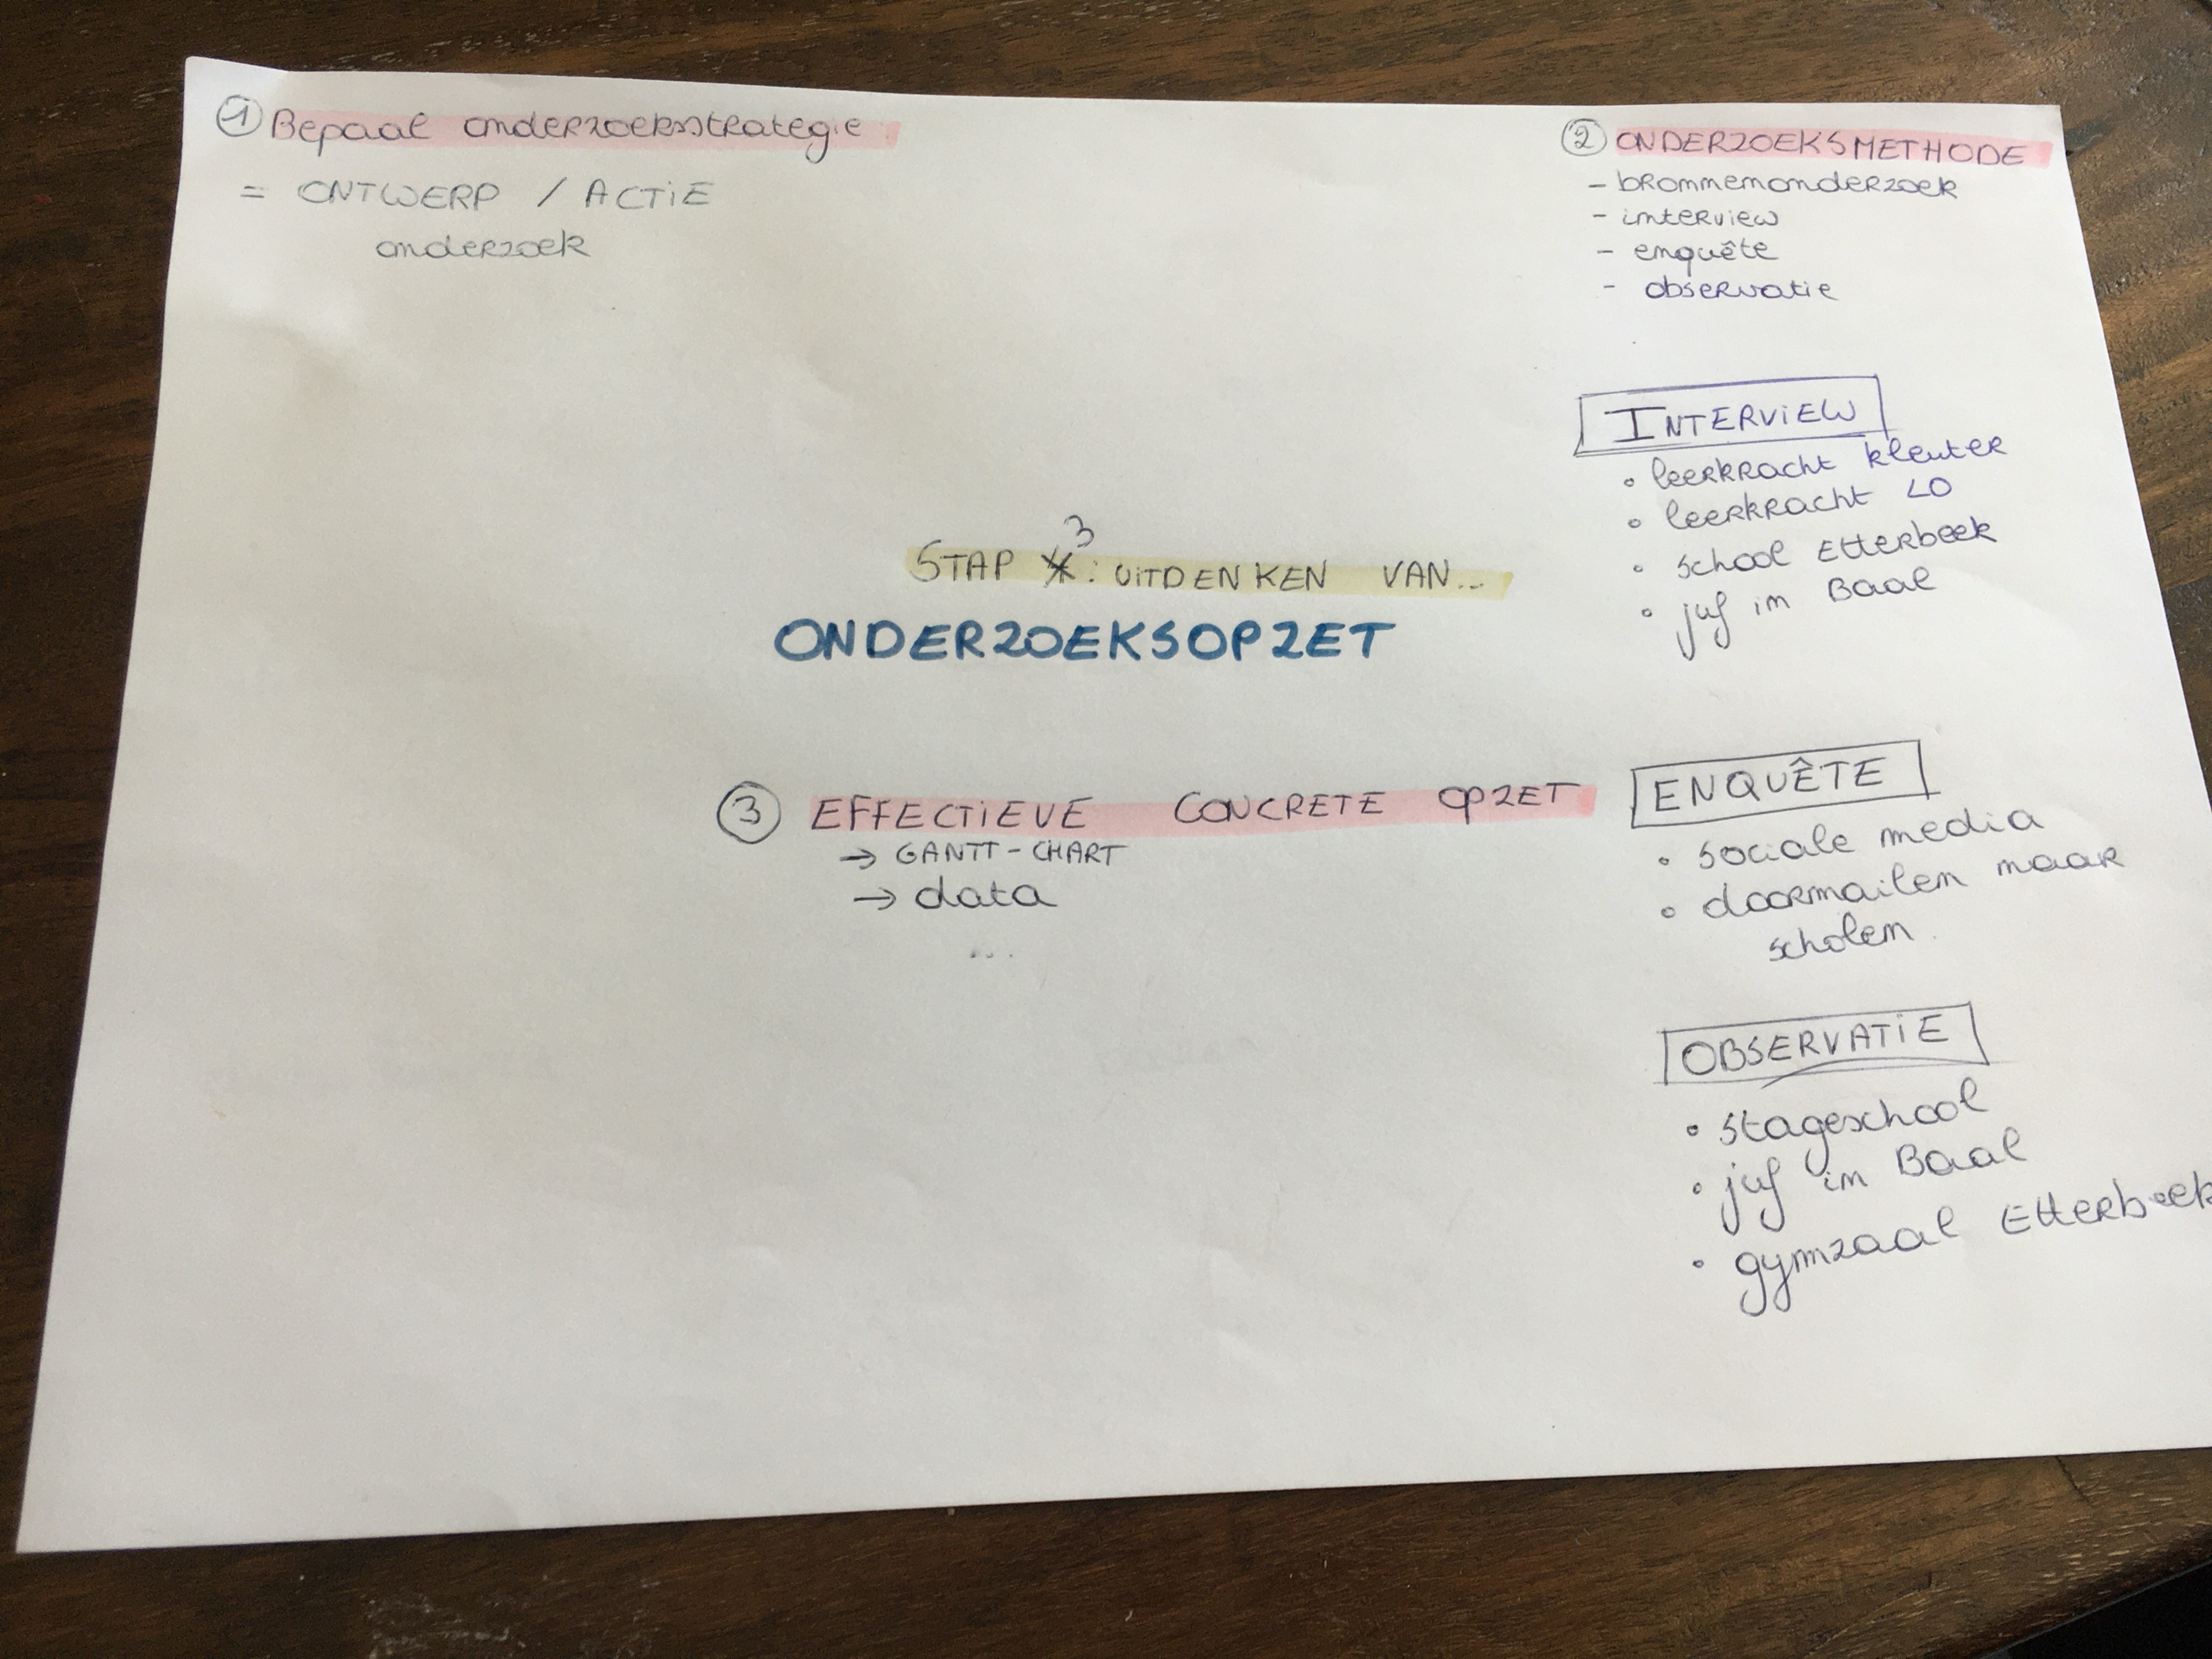 ① Bepaal onderzoeksstrategie
= ONTWERP / ACTIE
onderzoek
② ONDERZOEKSMETHODE
- bronnenonderzoek
- interview
- enquête
- observatie
INTERVIEW
• leerkracht kleuter
• leerkracht LO
• school Etterbeek
• juf in Baal
STAP 3: UITDENKEN VAN...
ONDERZOEKSOPZET
③ EFFECTIEVE CONCRETE OPZET
→ GANTT-CHART
→ data
...
ENQUÊTE
• sociale media
• doormailen naar
scholen
OBSERVATIE
• stageschool
• juf in Baal
• gymzaal Etterbeek